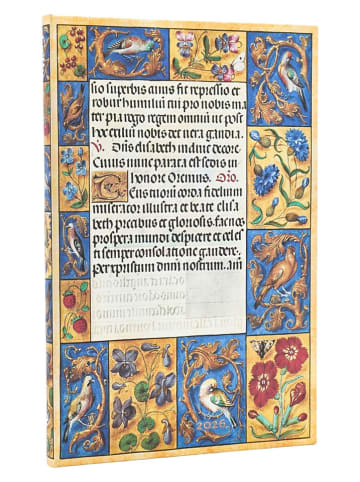 sio superbis anus fit repressio et
robur humiliū tui pro nobis ma
ter pia rego regem omniū ut post
hoc exiliū nobis det uera gaudia.
V. Diis elisabeth indue decore
Cuius nunc parata est sedis in
honore Oremus. Oro.
Tuorū corda fidelium
miserator illustra et beate elisa
beth precibus et gloriosis. fac nos
prospera mundi despicere et celes
ti semper consolatione gaudere.
Per xpristum dnm nostrum. Am
2026